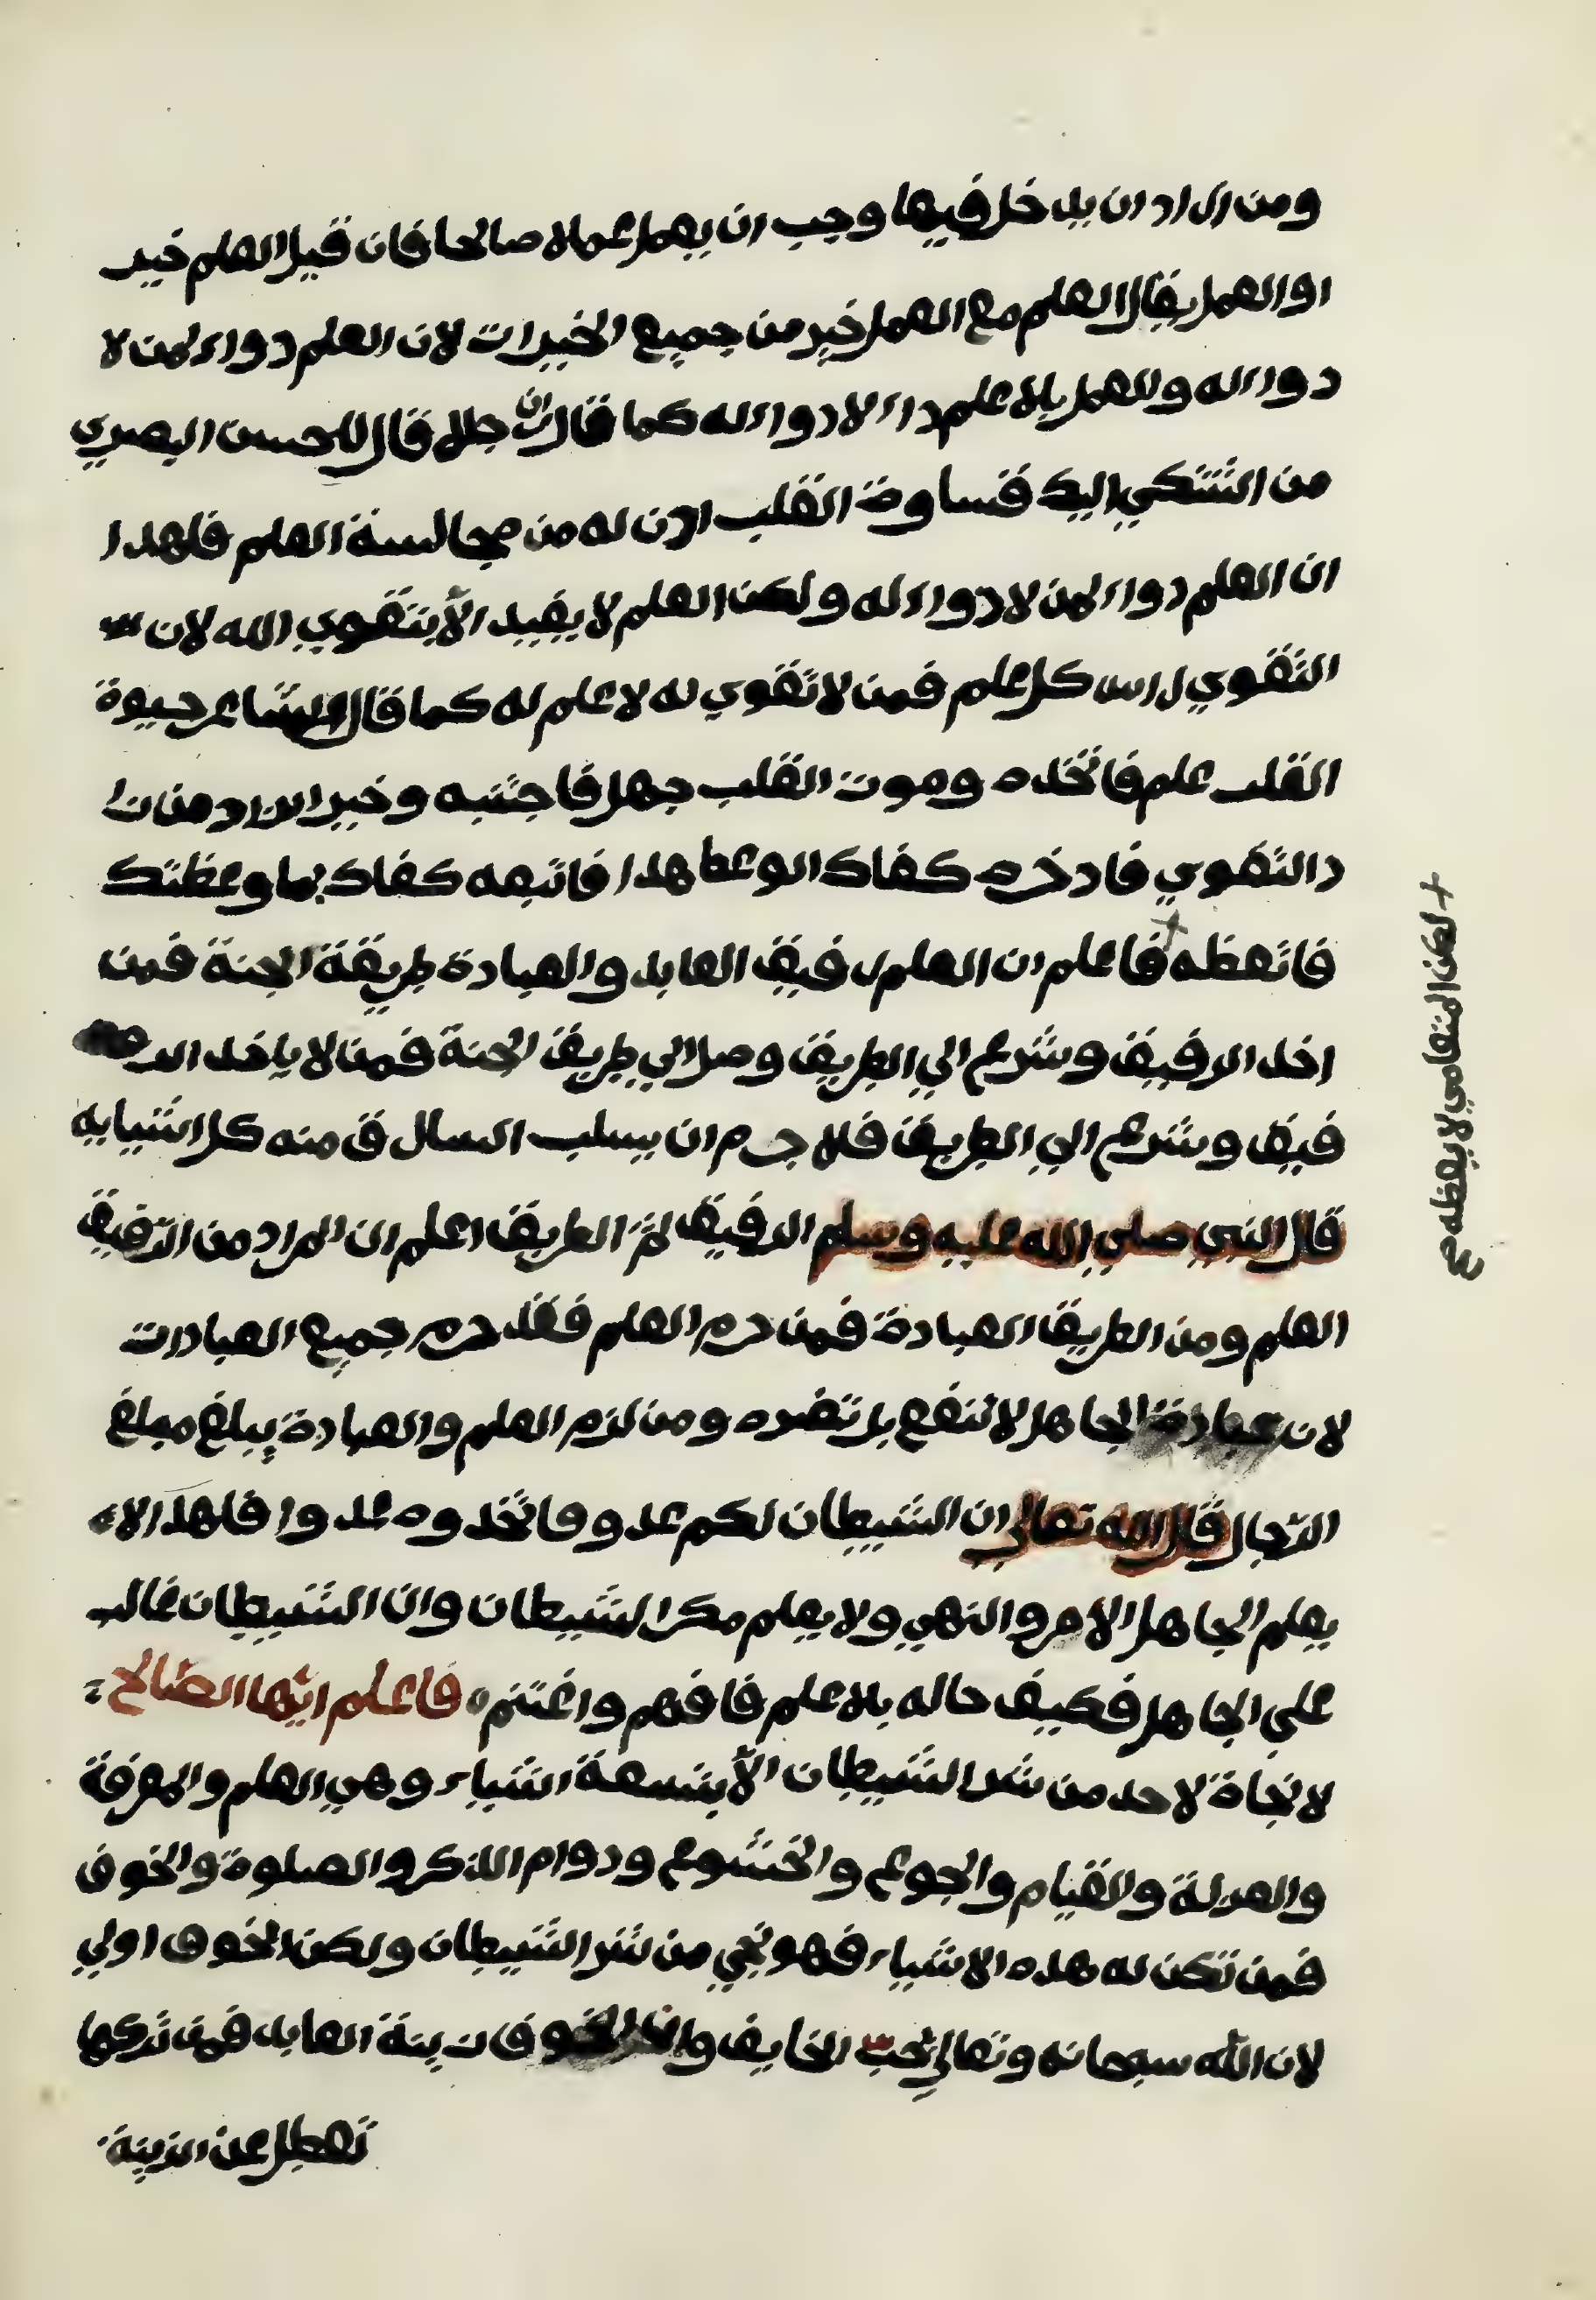 ومن اراد ان يدخل فيها وجب ان يعمل عملا صالحا فان قيل العلم خير
او العمل يقال العلم مع العمل خير من جميع الخيرات لان العلم دواء لمن لا
دواء له وللعمل بلا علم داء لا دواء له كما قال ان جلل قال للحسن البصري
من اشتكي اليك قساوة القلب ادن له من مجالسة العلم فلهدا
ان العلم دواء لمن لا دواء له ولكن العلم لا يفيد الّا بتقوي الله لان
التقوي راس كل علم فمن لا تقوي له لا علم له كما قال الشاعر حيوة
القلب علم فاتخده وموت القلب جهل فاجتنبه وخير الزاد من زا
د التقوي فادخره كفاك الوعظ هدا فاتبعه كفاك بما وعظتك
فاتعظه فاعلم ان العلم رفيق العابد والعبادة طريقة الجنة فمن
اخد الرفيق وشرع الي الطريق وصل الي طريق الجنة فمن لا ياخد الر
فيق وشرع الي الطريق فلا جرم ان يسلب السارق منه كل اثيابه
قال النبي صلي الله عليه وسلم الرفيق ثمّ الطريق اعلم ان المراد من الرّفيق
العلم ومن الطريق العبادة فمن حرم العلم فقد حرم جميع العبادات
لان عبادة الجاهل لا تنفع بل تضره ومن لزم العلم والعبادة يبلغ مبلغ
الرّجال قال الله تعالي ان الشيطان لكم عدو فاتخدوه عدوا فلهدا لا
يعلم الجاهل الامر والنهي ولا يعلم مكر الشيطان وان الشيطان غالب
علي الجاهل فكيف حاله بلا علم فافهم واغتنم فاعلم ايّها الصّالح
لا نجاة لاحد من شر الشيطان الّا بتسعة اشياء وهي العلم والمعرفة
والعزلة والقيام والجوع والخشوع ودوام الذكر والصلوة والخوف
فمن تكن له هده الاشياء فهو نجي من شر الشيطان ولكن الخوف اولي
لان الله سبحانه وتعالي يحبّ الخايف وان الخوف زينة العابد فمن تركها
تعطل عن الزينة
+ لكن المتعامي لا يعظه